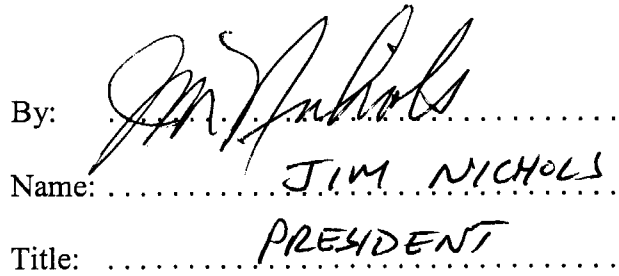 By: Jim Nichols
Name: JIM NICHOLS
Title: PRESIDENT